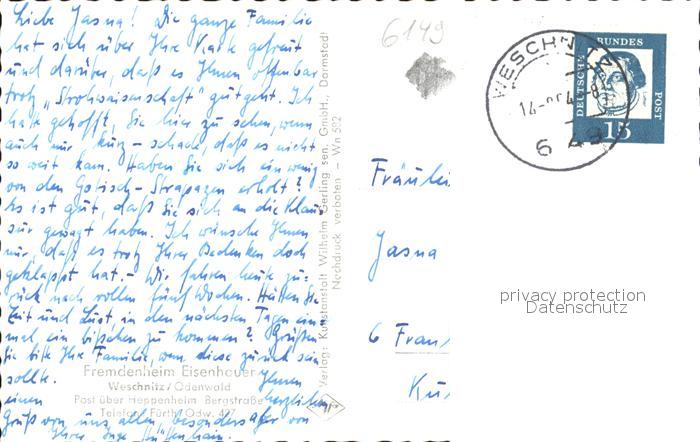 Liebe Jasna! Die ganze Familie
hat sich über Ihre Karte gefreut
und darüber, daß es Ihnen offenbar
trotz „Strohwaisenschaft" gut geht. Ich
hatte gehofft, Sie hier zu sehen, wenn
auch nur kurz - schade, daß es nicht
so weit kam. Haben Sie sich ein wenig
von den Gotisch-Strapazen erholt?
Es ist gut, daß Sie sich an die Klau-
sur gewagt haben. Ich wünsche Ihnen
nur, daß es trotz Ihrer Bedenken doch
geklappt hat. - Wir fahren heute zu-
rück nach vollen fünf Wochen. Hätten Sie
Zeit und Lust in den nächsten Tagen ein-
mal ein bißchen zu kommen? Grüßen
Sie bitte Ihre Familie, wenn diese zurück sein
sollte. Ihnen
einen herzlichen
Gruß von uns allen, besonders aber von
Ihrer Inge
Fremdenheim Eisenhauer
Weschnitz/Odenwald
Post über Heppenheim Bergstraße
Telefon Fürth Odw. 427
Verlag: Kunstanstalt Wilhelm Gerling sen. GmbH., Darmstadt
Nachdruck verboten - Wn 502
6149
WESCHNITZ
6149
DEUTSCHE
BUNDES
POST
15
Fräulei
Jasna
6 Fran
Ku
privacy protection
Datenschutz